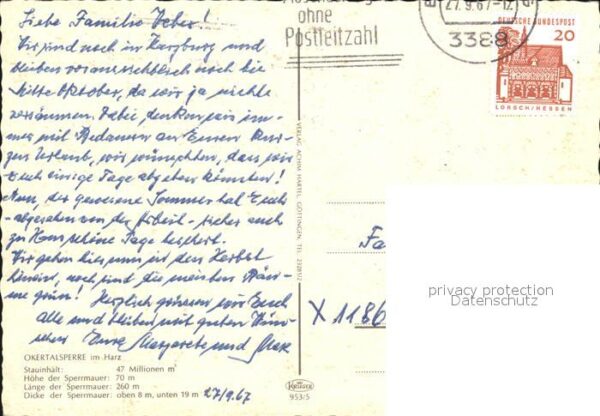 Liebe Familie Weber!
Wir sind noch in Harzburg und
bleiben voraussichtlich noch bis
Mitte Oktober, da wir ja nichts
versäumen. Dabei denken wir im-
mer mit Bedauern an Euren kur-
zen Urlaub, wir wünschten, dass wir
Euch einige Tage abgeben könnten!
Nun, der gewesene Sommer hat Euch
- abgesehen von der Arbeit - sicher auch
zu Haus schöne Tage beschert.
Wir gehen hier nun in den Herbst
hinein, noch sind die meisten Bäu-
me grün! Herzlich grüssen wir Euch
alle und bleiben mit guten Wün-
schen Eure Margarete und Max
OKERTALSPERRE im Harz
Stauinhalt: 47 Millionen m³
Höhe der Sperrmauer: 70 m
Länge der Sperrmauer: 260 m
Dicke der Sperrmauer: oben 8 m, unten 19 m
27/9.67
VERLAG ACHIM HARTEL, GÖTTINGEN, TEL.
KRÜGER
953/5
ohne
Postleitzahl
27.9.67-12
3388
DEUTSCHE BUNDESPOST
20
LORSCH/HESSEN
Fa
X 1186
privacy protection
Datenschutz